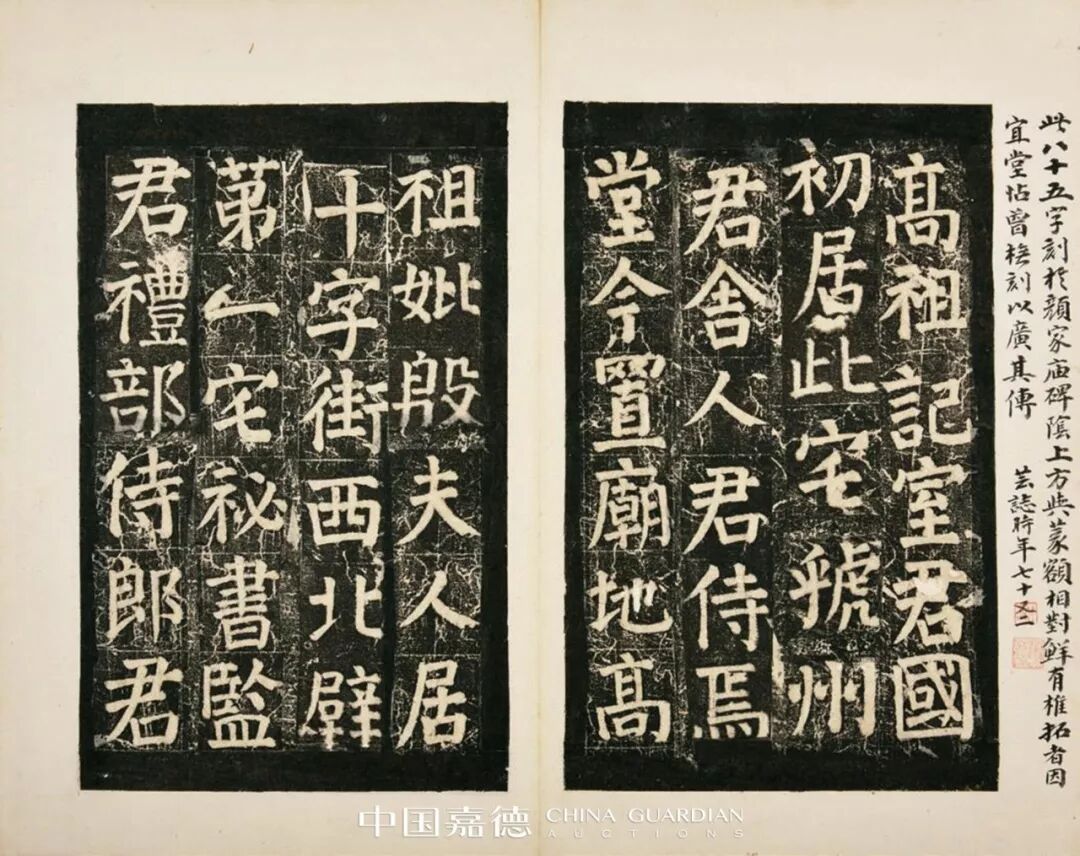 此八十五字刻於顏家庙碑隂上方與篆額相對鮮有椎拓者因
宜堂帖曾橅刻以廣其傳
芸誌時年七十又二
髙祖記室君國
初居此宅虢州
君舍人君侍焉
堂今置廟地髙
祖妣殷夫人居
十字街西北壁
苐一宅祕書監
君禮部侍郎君
中国嘉德 CHINA GUARDIAN
AUCTIONS